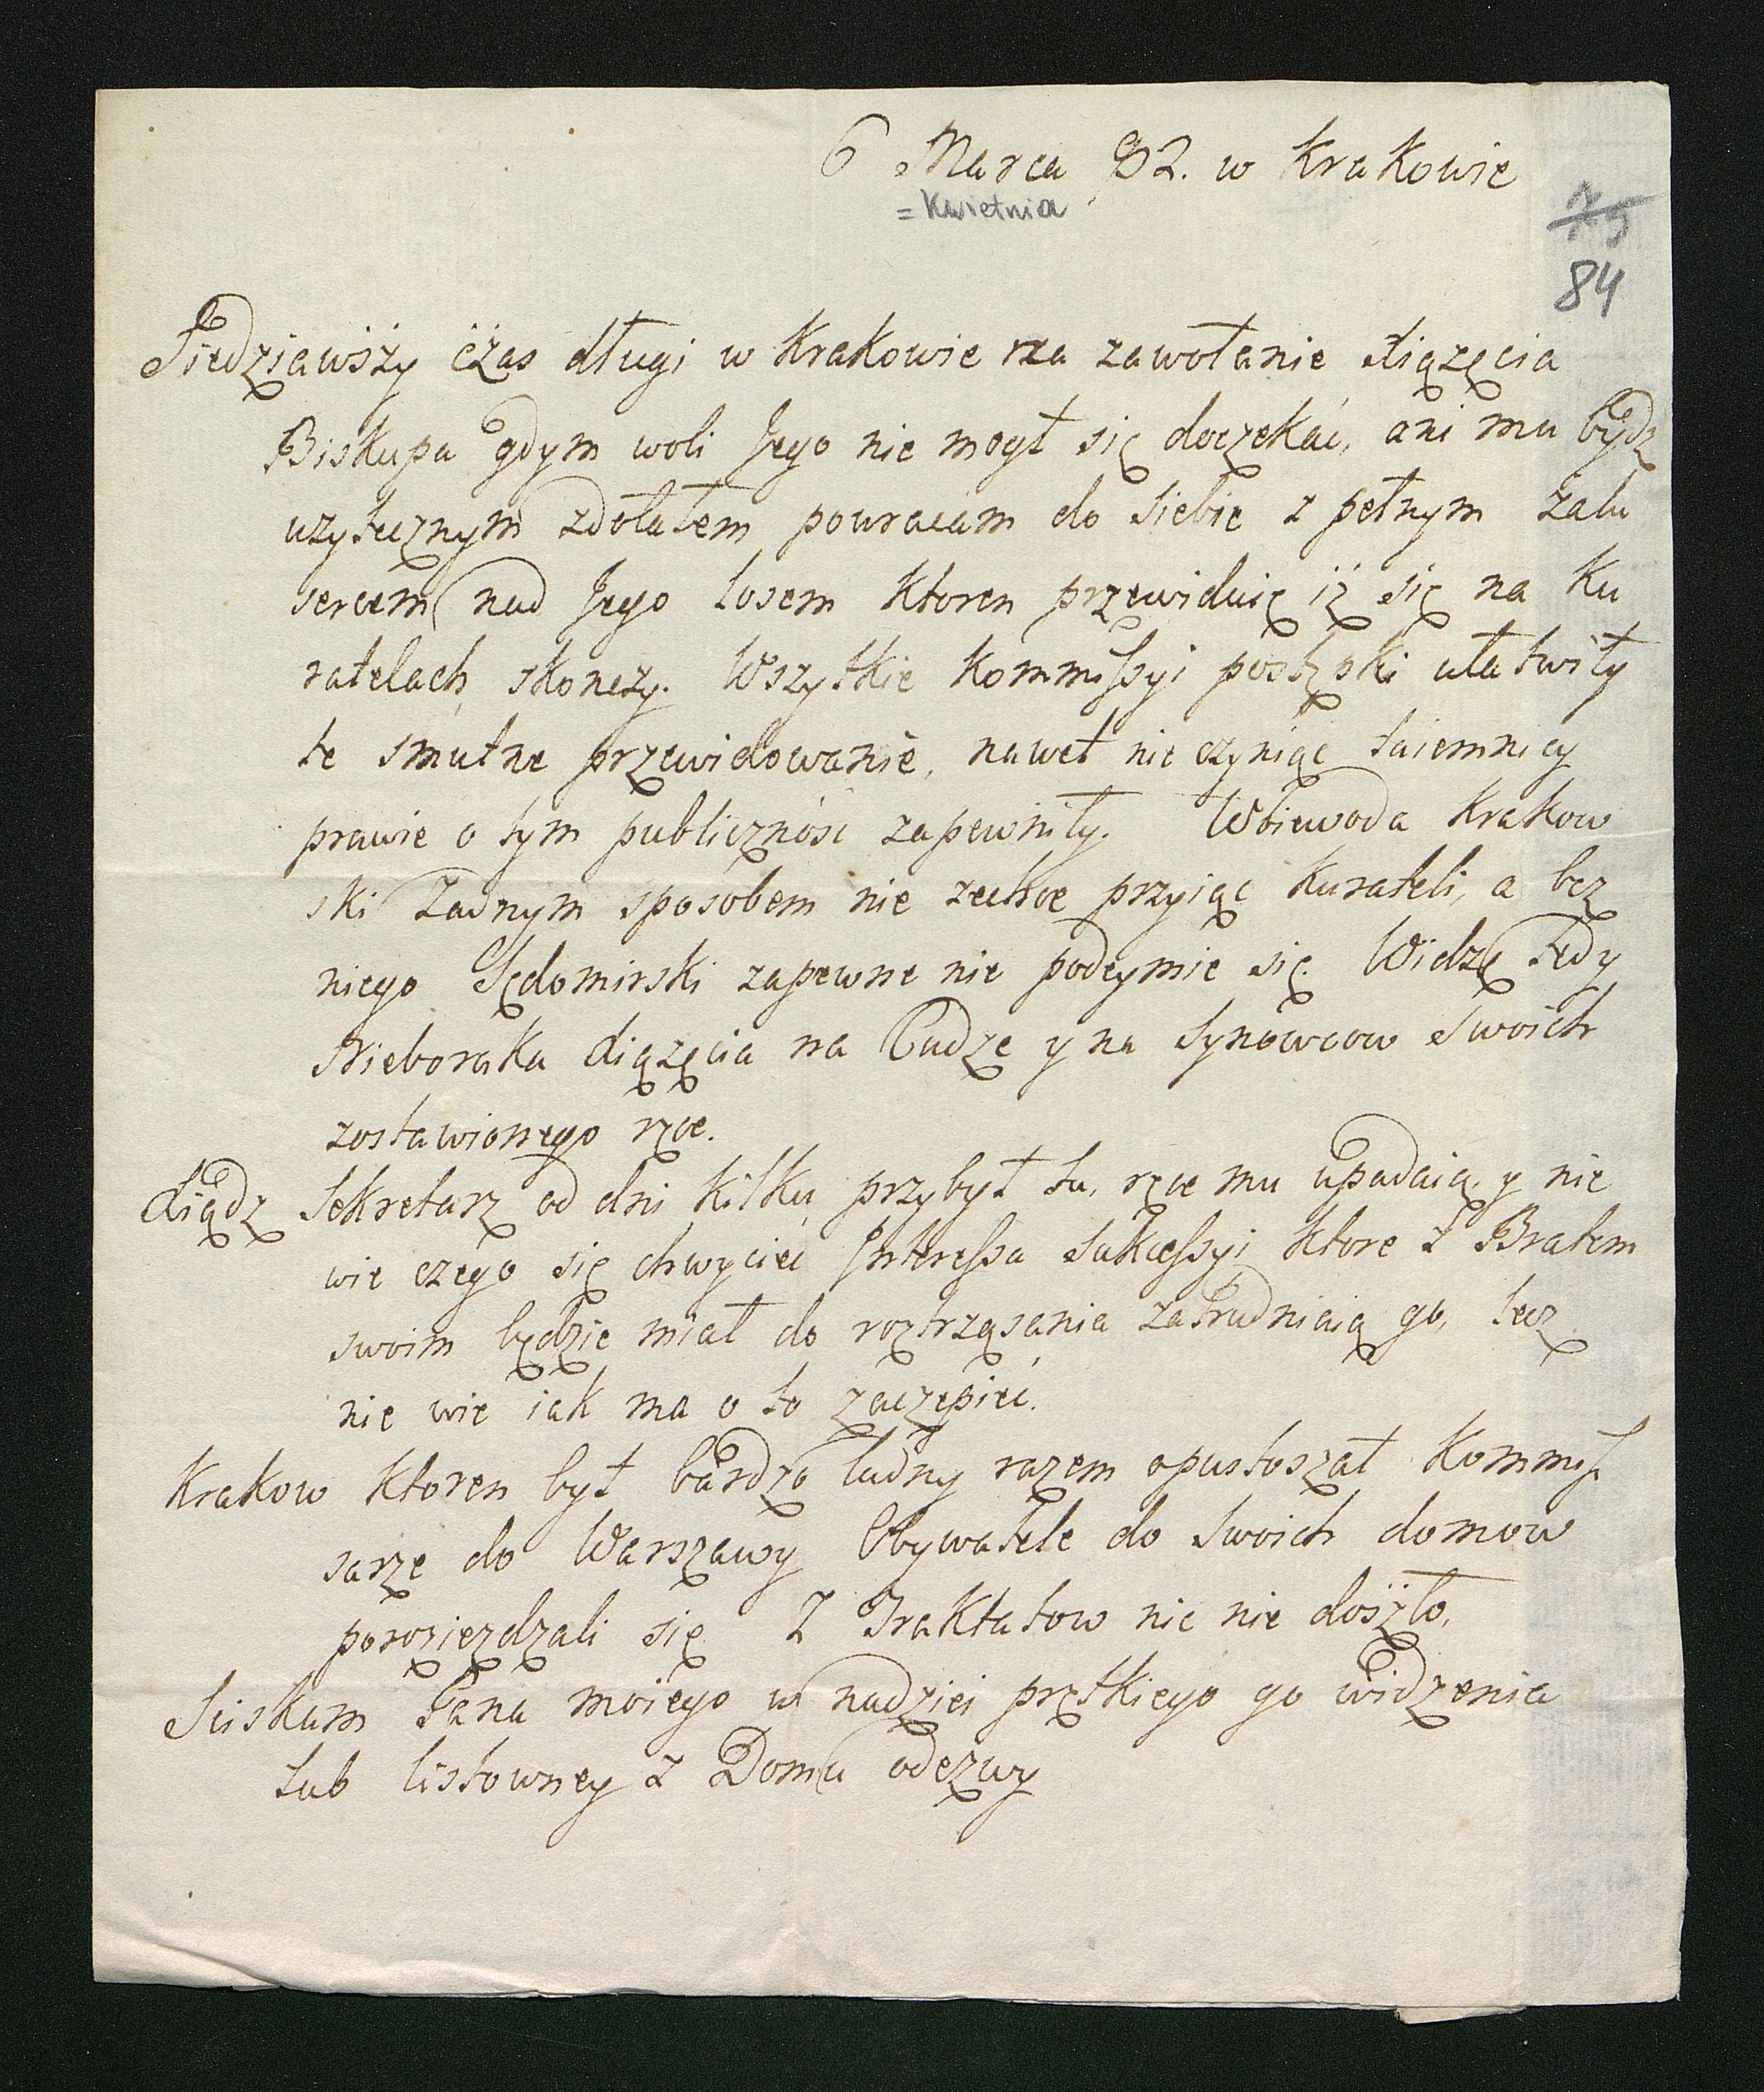 6 Marca 82. w Krakowie
= Kwietnia
75
84
Siedziawszy czas długi w Krakowie na zawołanie Xiążęcia
Biskupa gdym woli Jego nie mogł się doczekać, ani mu bydz
uzytecznym zdołałem powracam do siebie z pełnym zalu
sercem nad Jego losem ktoren przewiduię iż się na Ku
ratelach skonczy. Wszytkie Kommissyi postępki ułatwiły
te smutne przewidowanie, nawet nie czyniąc taiemnicy
prawie o tym publicznosć zapewniły. Woiewoda Krakow
ski Zadnym sposobem nie zechce przyiąc Kurateli, a bez
niego Sędomirski zapewne nie podeymie się. Widzę tedy
Nieboraka Xiążęcia na Cudze y na Synowcow Swoich
zostawionego ręce.
Xiądz Sekretarz od dni kilku przybył tu, ręce mu upadaią, y nie
wie czego się chwycieć Interessa Sukcessyi ktore z Bratem
swoim będzie miał do roztrząsania zatrudniaią go, lecz
nie wie iak ma o to zaczepieć.
Krakow ktoren był bardzo ludny razem opustoszał Kommis
sarze do Warszawy Obywatele do Swoich domow
porozjezdzali się. Z Traktatow nic nie doszło,
Sciskam Pana moiego w nadziei prętkiego go widzenia
lub listowney z Domu odezwy